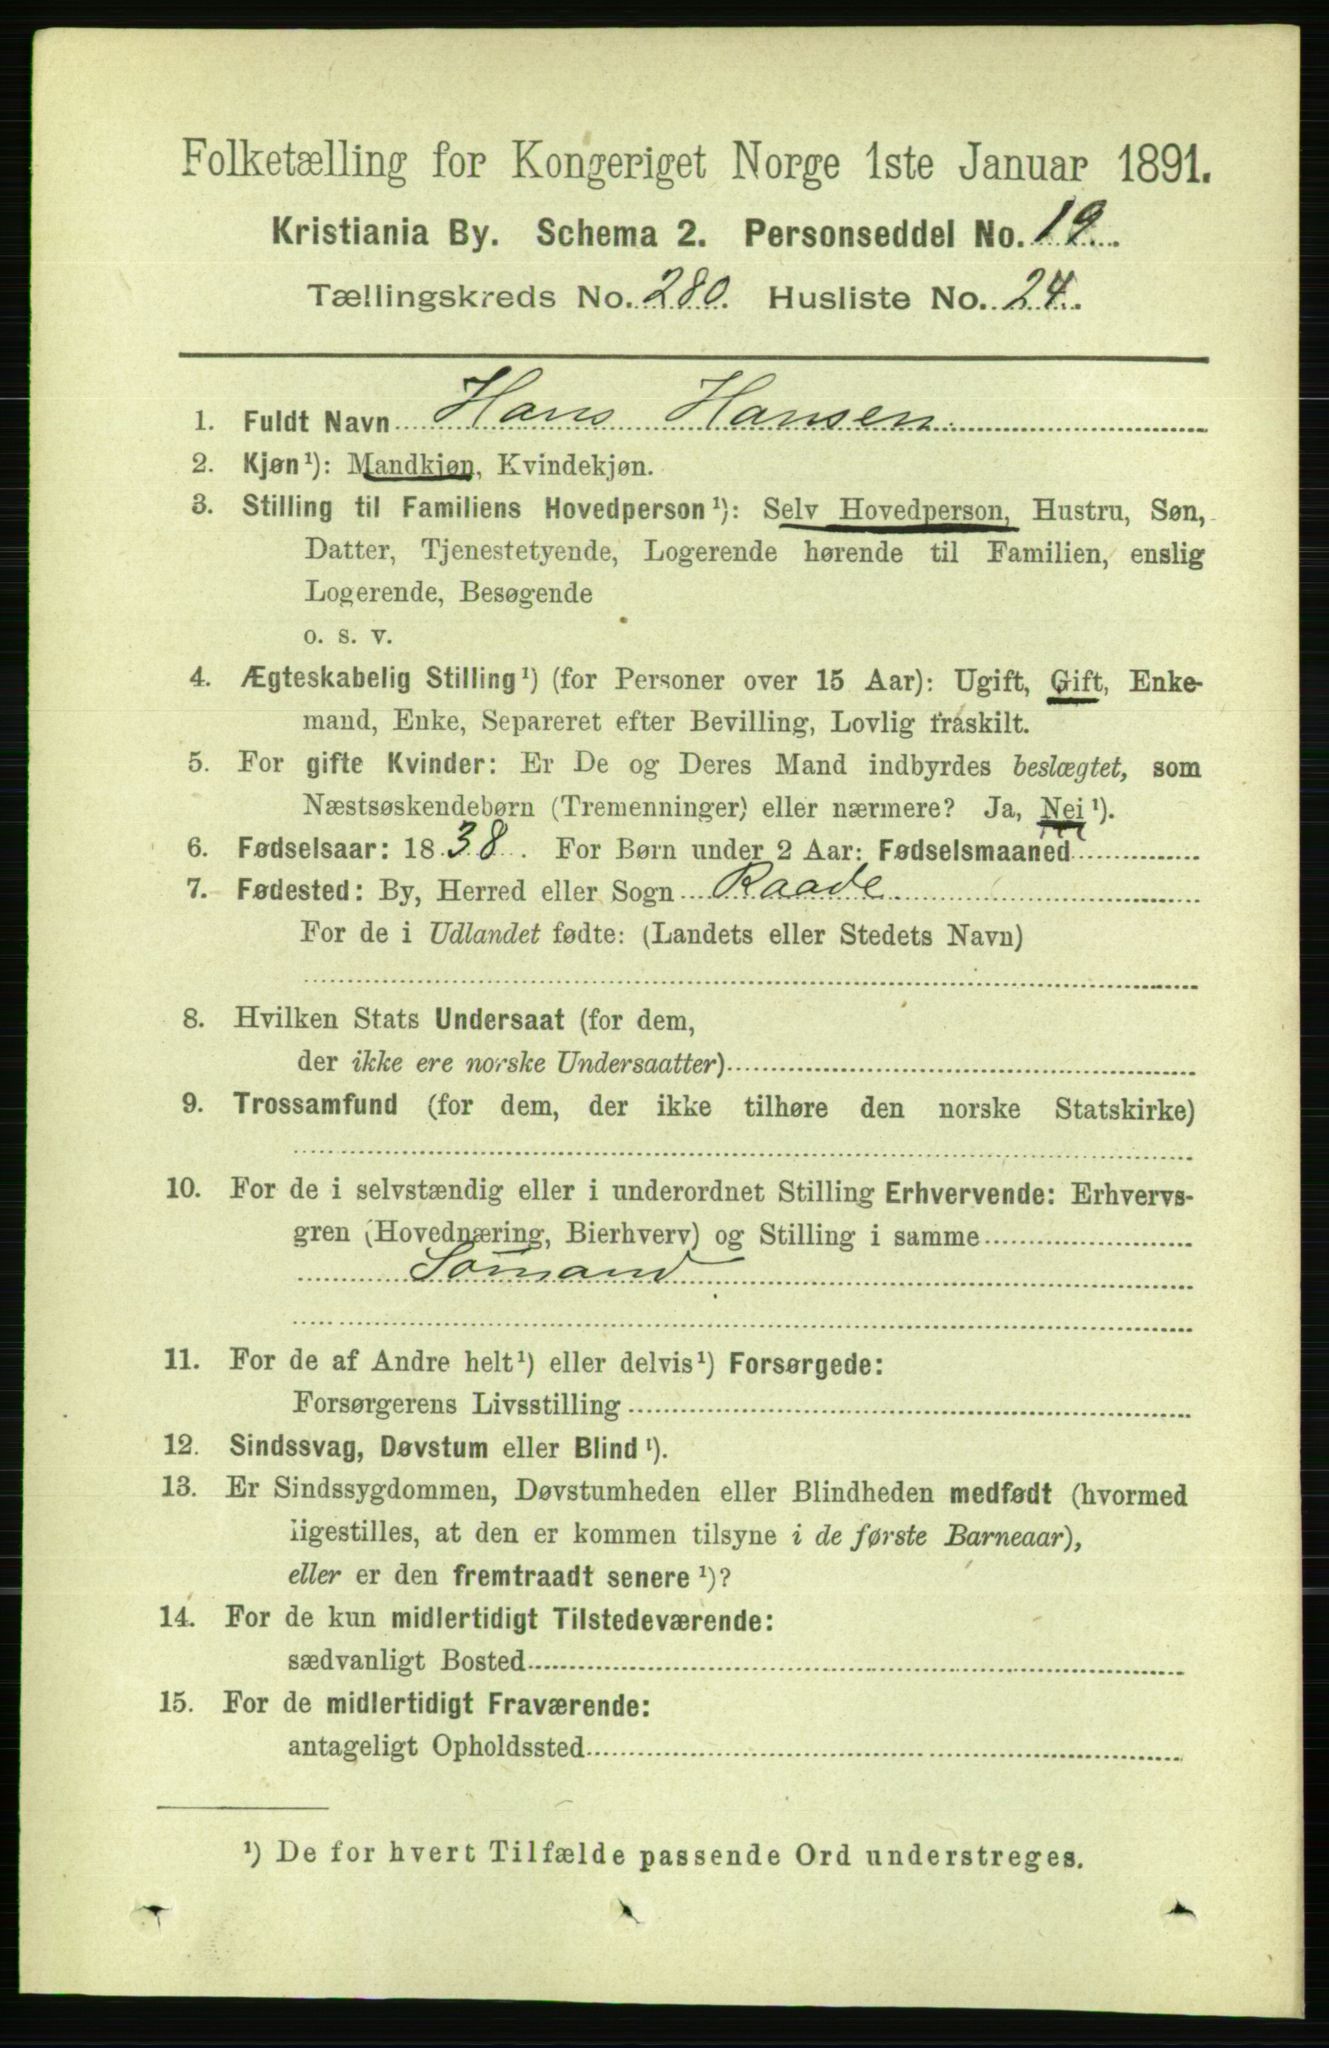 Folketælling for Kongeriget Norge 1ste Januar 1891.
Kristiania By. Schema 2. Personseddel No. 19.
Tællingskreds No. 280. Husliste No. 24.
1. Fuldt Navn Hans Hansen
2. Kjøn¹): Mandkjøn, Kvindekjøn.
3. Stilling til Familiens Hovedperson¹): Selv Hovedperson, Hustru, Søn,
Datter, Tjenestetyende, Logerende hørende til Familien, enslig
Logerende, Besøgende
o. s. v.
4. Ægteskabelig Stilling¹) (for Personer over 15 Aar): Ugift, Gift, Enke-
mand, Enke, Separeret efter Bevilling, Lovlig fraskilt.
5. For gifte Kvinder: Er De og Deres Mand indbyrdes beslægtet, som
Næstsøskendebørn (Tremenninger) eller nærmere? Ja, Nei¹).
6. Fødselsaar: 1838. For Børn under 2 Aar: Fødselsmaaned
7. Fødested: By, Herred eller Sogn Raade
For de i Udlandet fødte: (Landets eller Stedets Navn)
8. Hvilken Stats Undersaat (for dem,
der ikke ere norske Undersaatter)
9. Trossamfund (for dem, der ikke tilhøre den norske Statskirke)
10. For de i selvstændig eller i underordnet Stilling Erhvervende: Erhvervs-
gren (Hovednæring, Bierhverv) og Stilling i samme
Sømand
11. For de af Andre helt¹) eller delvis¹) Forsørgede:
Forsørgerens Livsstilling
12. Sindssvag, Døvstum eller Blind¹).
13. Er Sindssygdommen, Døvstumheden eller Blindheden medfødt (hvormed
ligestilles, at den er kommen tilsyne i de første Barneaar),
eller er den fremtraadt senere¹)?
14. For de kun midlertidigt Tilstedeværende:
sædvanligt Bosted
15. For de midlertidigt Fraværende:
antageligt Opholdssted
¹) De for hvert Tilfælde passende Ord understreges.